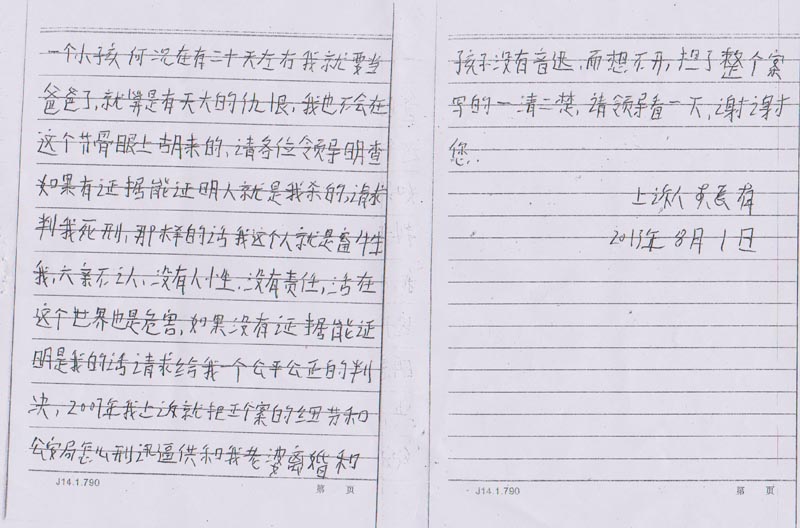 一个小孩何况在有二十天左右我就要当
爸爸了,就算是有天大的仇恨,我也不会在
这个节骨眼上胡来的,请各位领导明查
如果有证据能证明人就是我杀的,请求
判我死刑,那样的话我这个人就是畜牲
我,六亲不认,没有人性,没有责任,活在
这个世界也是危害,如果没有证据能证
明是我的话请求给我一个公平公正的判
决,2009年我上诉就把正个案的细节和
公安局怎么刑讯逼供和我老婆离婚和
J14.1.790 第 页
孩子没有音迅,而想不开,把了整个案
写的一清二楚,请领导看一下,谢谢
您.
上诉人
2015年8月1日
J14.1.790 第 页